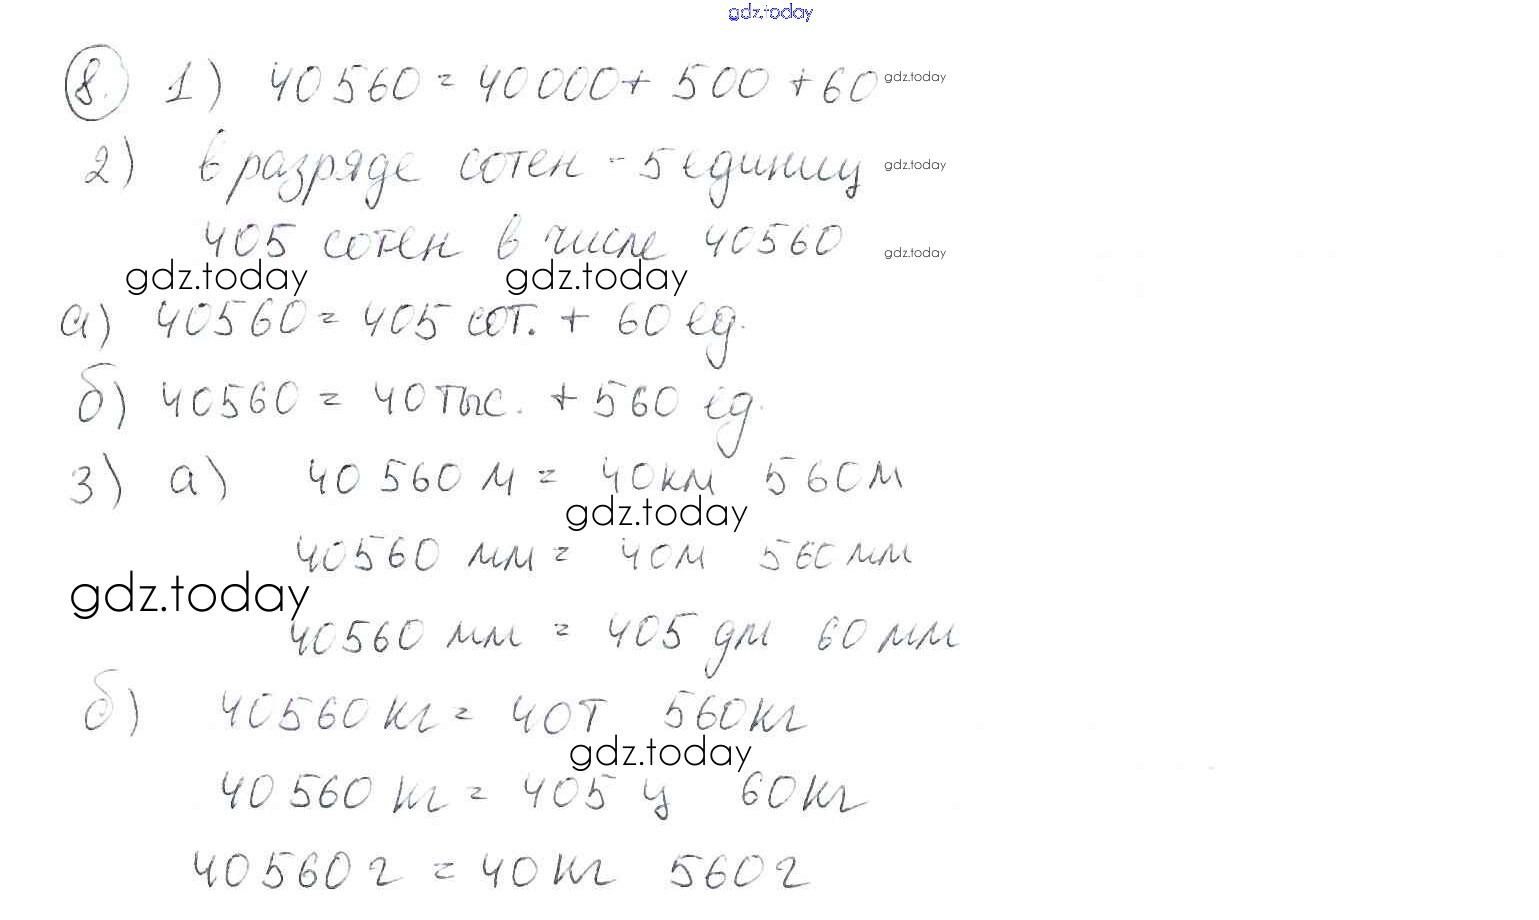 gdz.today
8. 1) 40560 = 40000 + 500 + 60 gdz.today
2) в разряде сотен - 5 единиц gdz.today
405 сотен в числе 40560 gdz.today
gdz.today gdz.today
а) 40560 = 405 сот. + 60 ед.
б) 40560 = 40 тыс. + 560 ед.
3) а) 40 560 м = 40 км 560 м
gdz.today
40560 мм = 40 м 560 мм
gdz.today
40560 мм = 405 дм 60 мм
б) 40560 кг = 40 т 560 кг
gdz.today
40 560 кг = 405 ц 60 кг
40 560 г = 40 кг 560 г